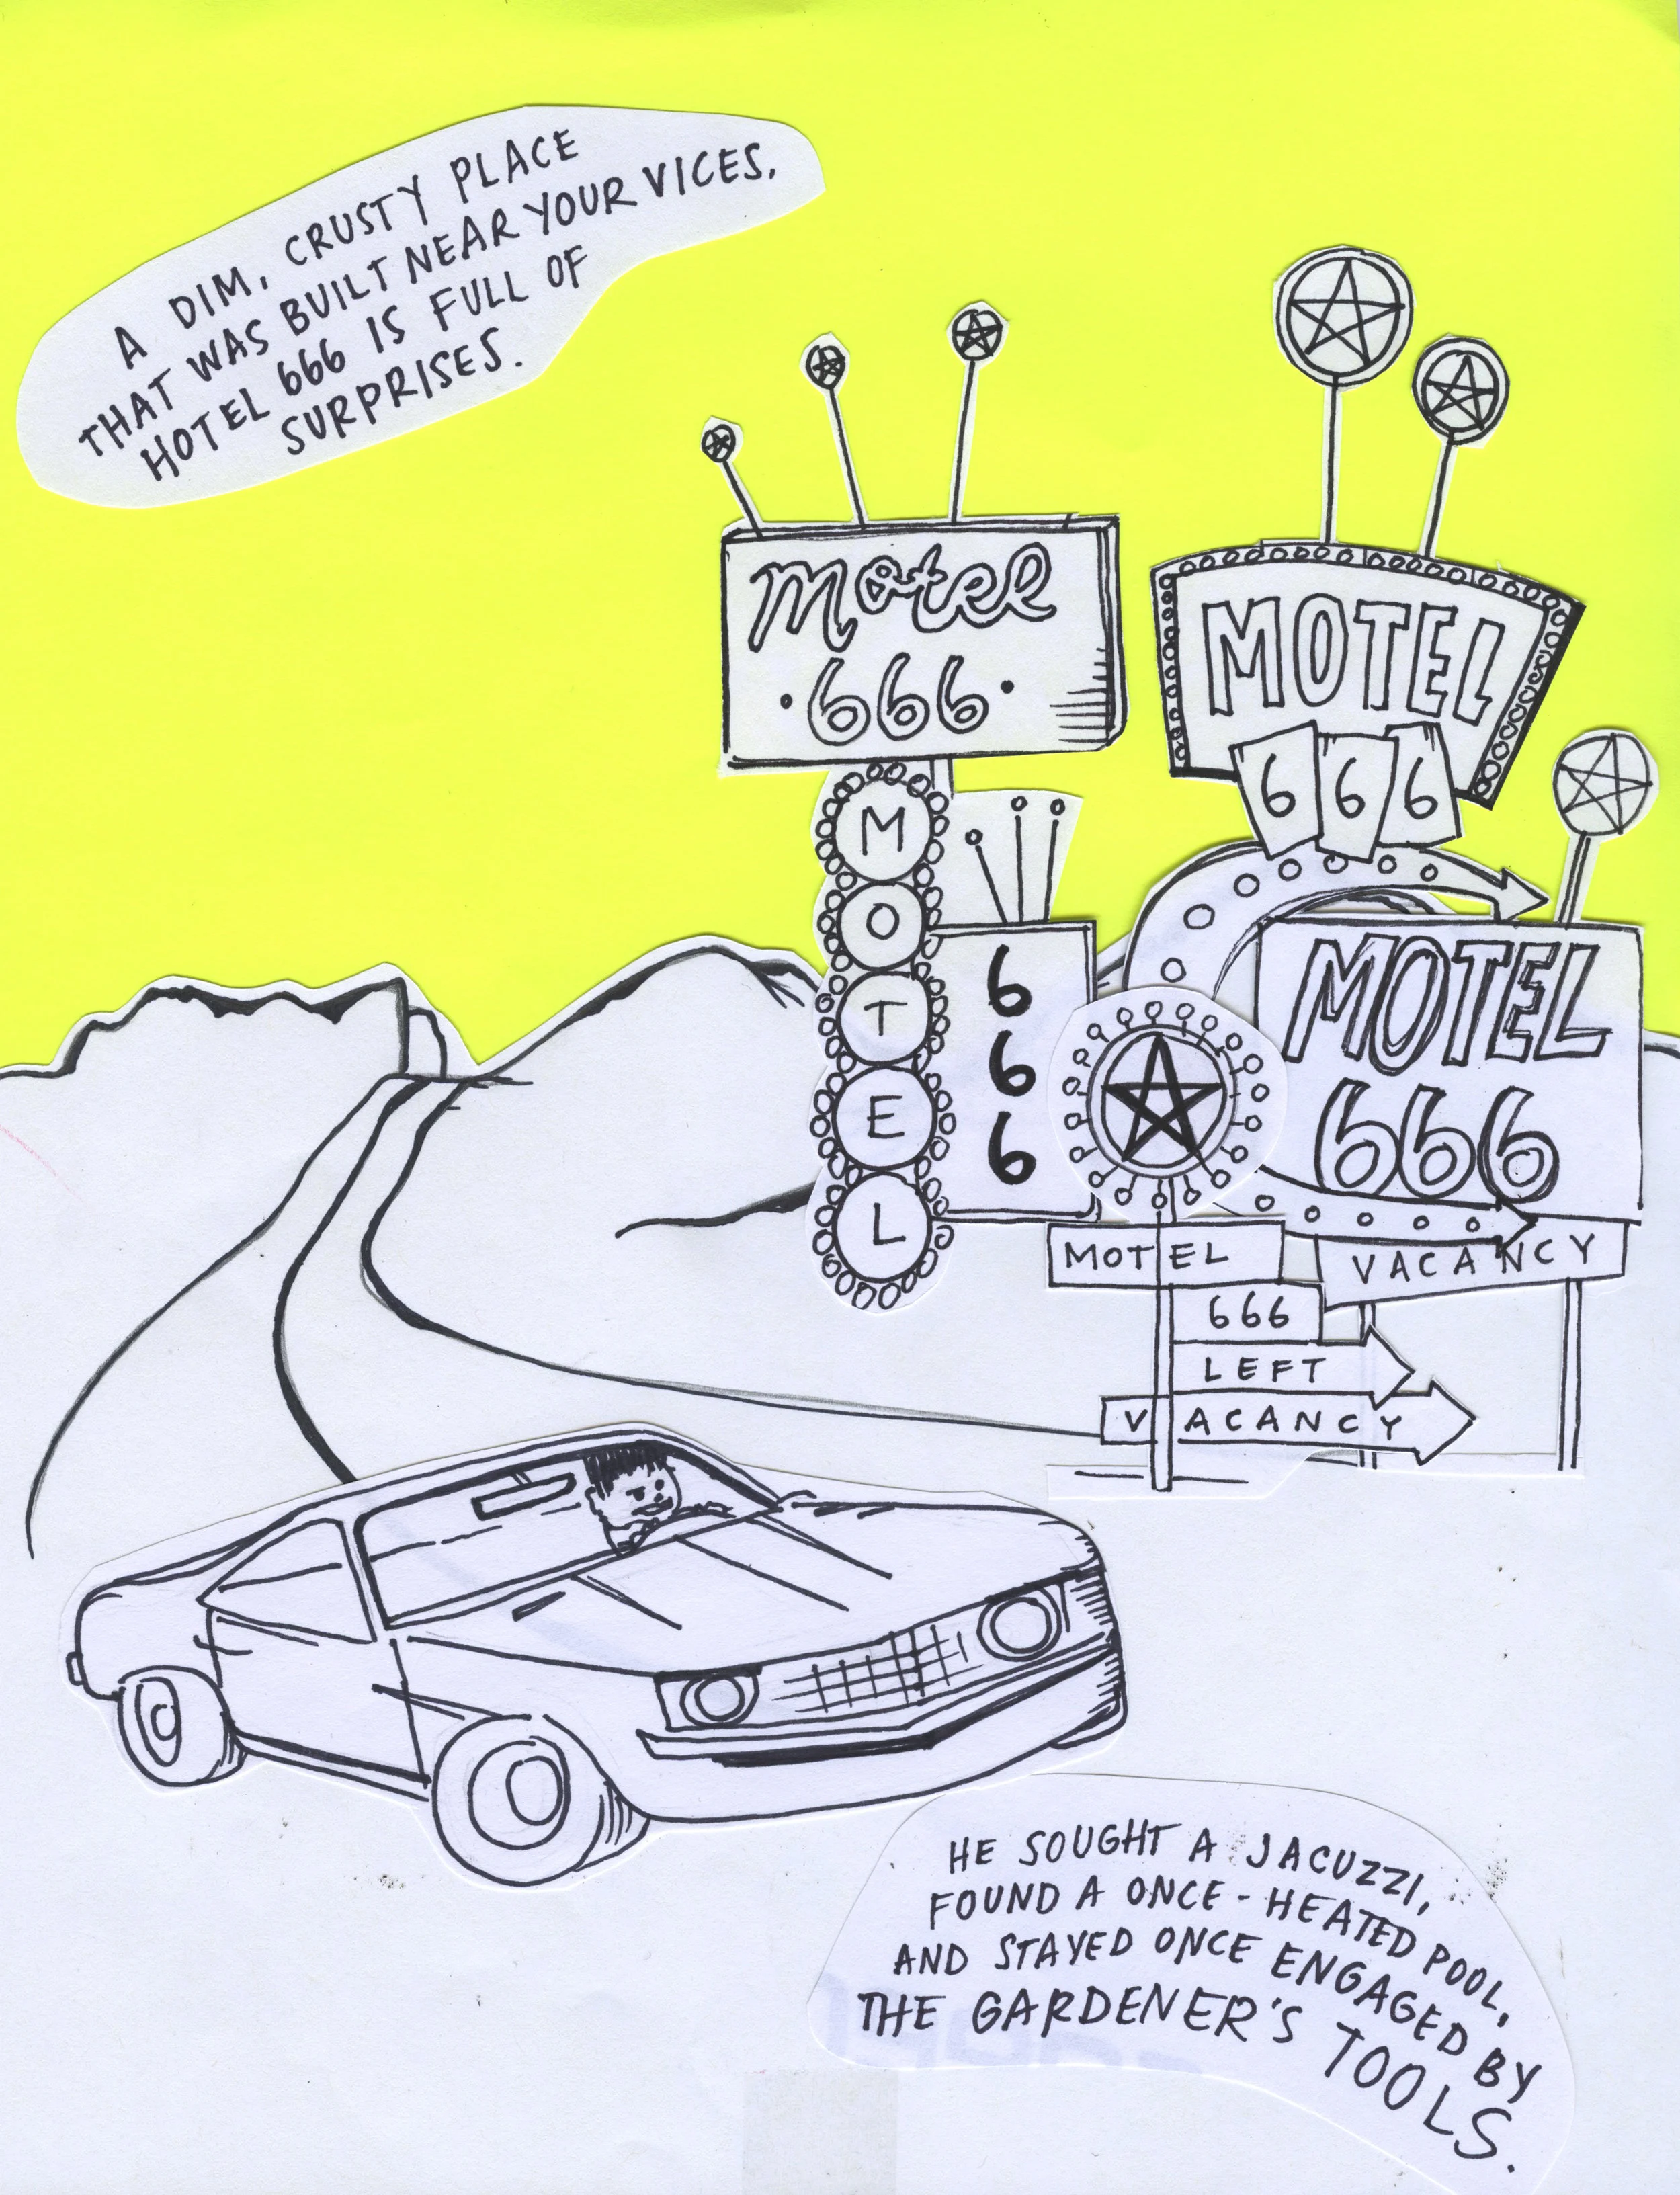 A DIM, CRUSTY PLACE
THAT WAS BUILT NEAR YOUR VICES,
HOTEL 666 IS FULL OF
SURPRISES.
Motel
·666·
MOTEL
6 6 6
M
O
T
E
L
6
6
6
MOTEL
666
MOTEL
VACANCY
666
LEFT
VACANCY
HE SOUGHT A JACUZZI,
FOUND A ONCE-HEATED POOL,
AND STAYED ONCE ENGAGED BY
THE GARDENER'S TOOLS.